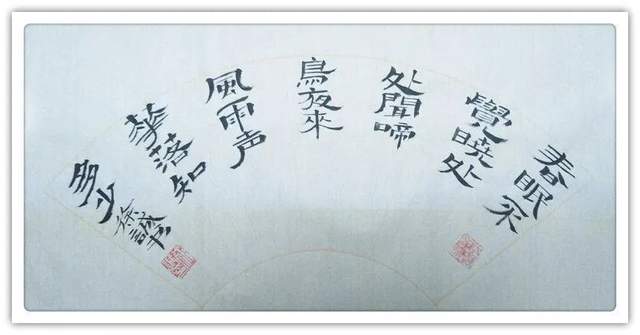 春眠不
覺曉处
处聞啼
鳥夜來
風雨声
華落知
多少
徐誠书